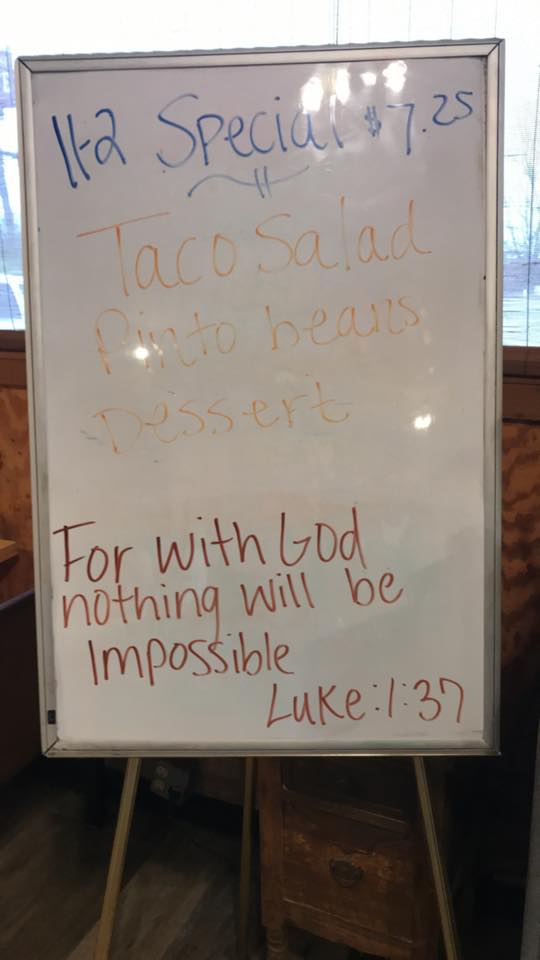 11-2 Special $7.25
Taco Salad
Pinto beans
Dessert
For with God
nothing will be
Impossible
Luke:1:37